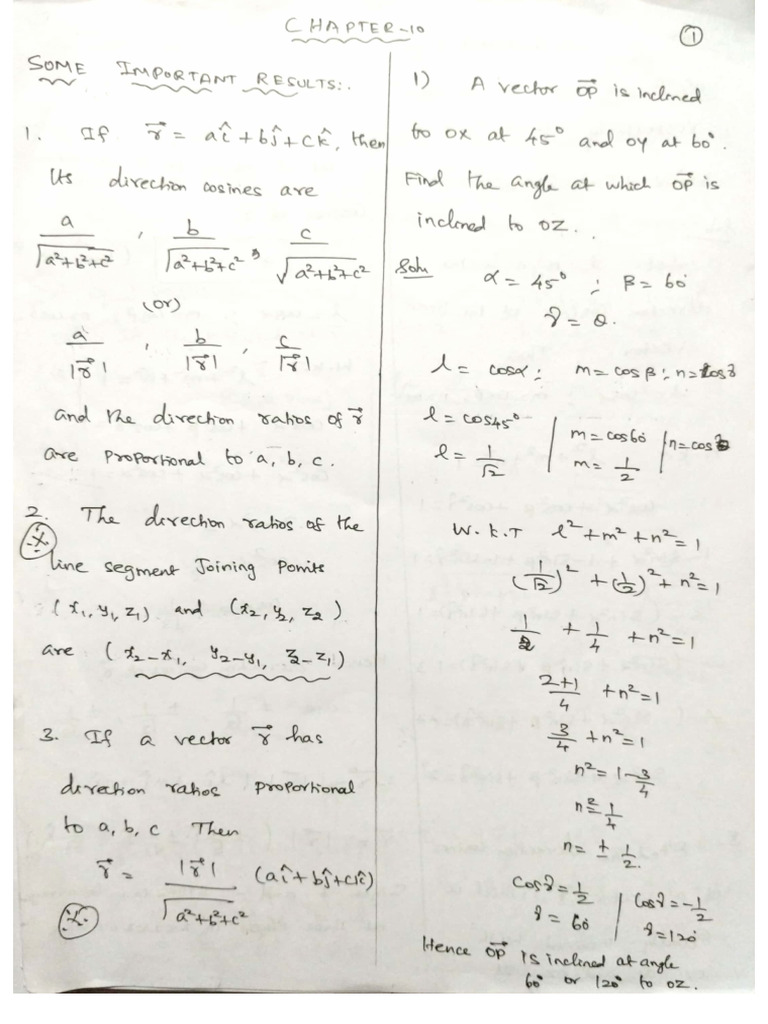 CHAPTER-10
①
SOME IMPORTANT RESULTS:.
1. If r⃗ = aî + bĵ + ck̂, then
its direction cosines are
a/√(a²+b²+c²) , b/√(a²+b²+c²) , c/√(a²+b²+c²)
(or)
a/|r⃗| , b/|r⃗| , c/|r⃗|
and the direction ratios of r⃗
are proportional to a, b, c.
2. The direction ratios of the
line segment Joining Points
(x₁, y₁, z₁) and (x₂, y₂, z₂)
are (x₂-x₁, y₂-y₁, z₂-z₁)
3. If a vector r⃗ has
direction ratios proportional
to a, b, c Then
r⃗ = |r⃗|/√(a²+b²+c²) (aî + bĵ + ck̂)
1) A vector OP⃗ is inclined
to OX at 45° and OY at 60°.
Find the angle at which OP⃗ is
inclined to OZ.
Soln α = 45° ; β = 60°
γ = θ.
l = cosα ; m = cosβ ; n = cosγ
l = cos45° | m = cos60 | n = cosγ
l = 1/√2 | m = 1/2
W.K.T l² + m² + n² = 1
(1/√2)² + (1/2)² + n² = 1
1/2 + 1/4 + n² = 1
2+1/4 + n² = 1
3/4 + n² = 1
n² = 1 - 3/4
n² = 1/4
n = ± 1/2.
cosγ = 1/2 | cosγ = -1/2
γ = 60° | γ = 120°
Hence OP⃗ is inclined at angle
60° or 120° to OZ.